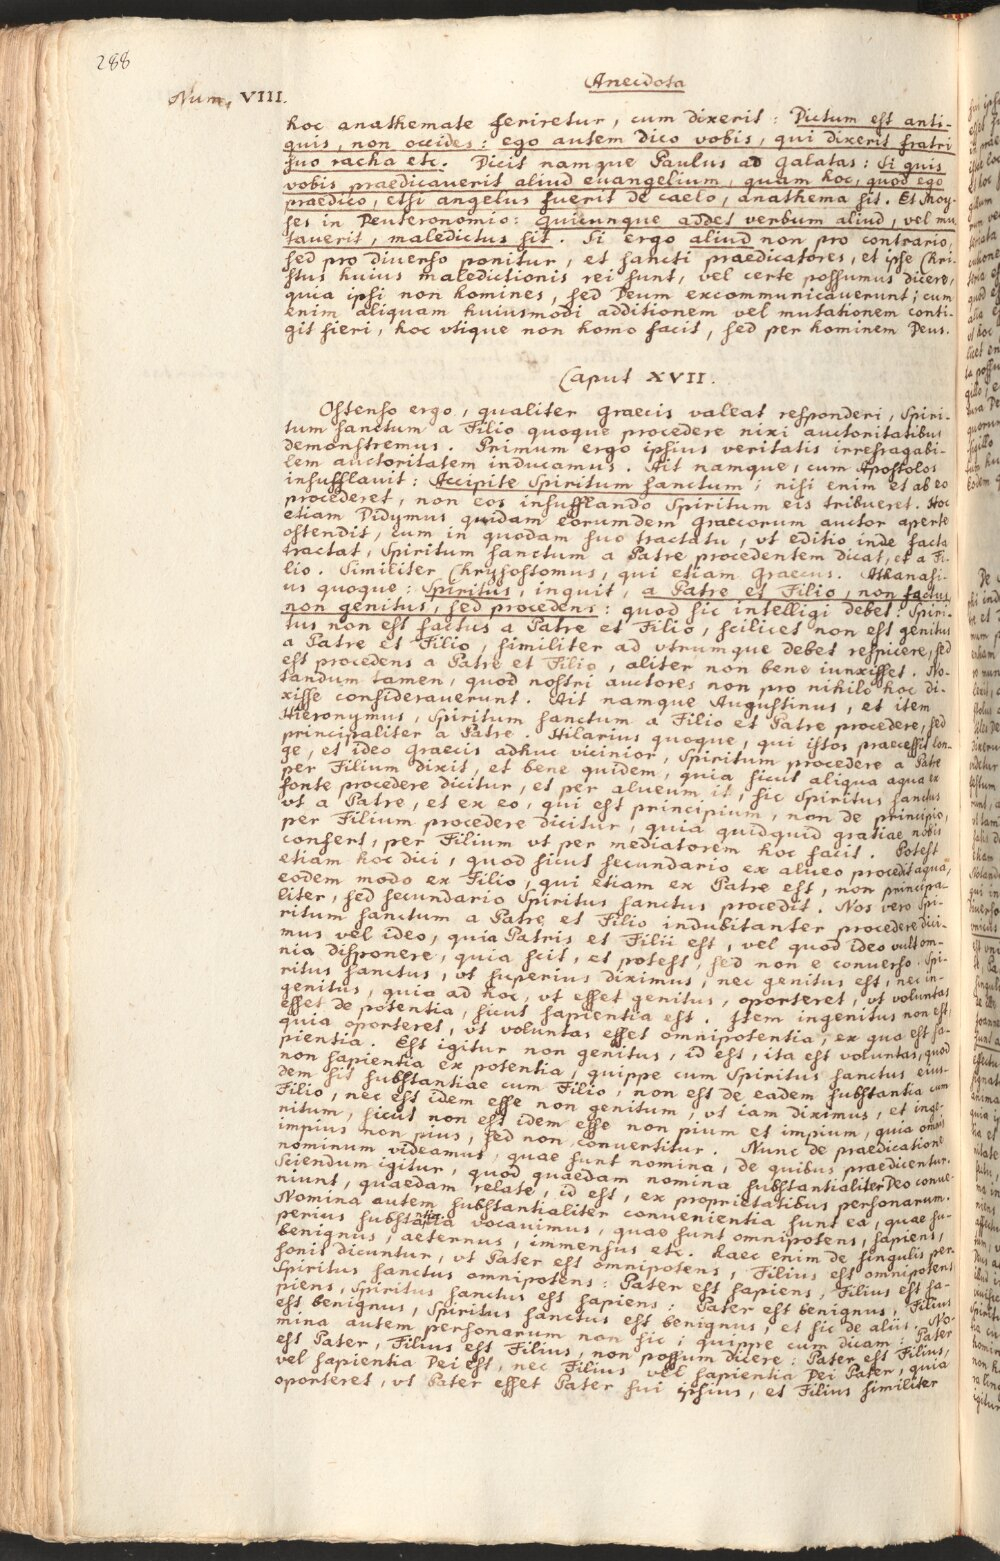 288
Anecdota
Num. VIII.
hoc anathemate feriretur, cum dixerit: Dictum est anti-
quis, non occides: ego autem dico vobis, qui dixerit fratri
suo racha etc. Dicit namque Paulus ad Galatas: Si quis
vobis praedicaverit aliud euangelium, quam hoc, quod ego
praedico, etsi angelus fuerit de caelo, anathema sit. Et Moy-
ses in Deuteronomio: Quicunque addet verbum aliud, vel mu
taverit, maledictus sit. Si ergo aliud non pro contrario,
sed pro diverso ponitur, et sancti praedicatores, et ipse Chri-
stus huius maledictionis rei sunt, vel certe possumus dicere,
quia ipsi non homines, sed Deum excommunicauerunt; cum
enim aliquam huiusmodi additionem vel mutationem conti-
git fieri, hoc vtique non homo facit, sed per hominem Deus.
Caput XVII.
Ostenso ergo, qualiter Graecis valeat responderi, Spiri-
tum sanctum a Filio quoque procedere nixi auctoritatibus
demonstremus. Primum ergo ipsius veritatis irrefragabi-
lem auctoritatem inducamus. Ait namque, cum Apostolos
insufflavit: Accipite Spiritum sanctum; nisi enim et ab eo
procederet, non eos insufflando Spiritum eis tribueret. Hoc
etiam Didymus quidam eorumdem Graecorum auctor aperte
ostendit, cum in quodam suo tractatu, vt editio inde facta
tractat, Spiritum sanctum a Patre procedentem dicat, et a Fi-
lio. Similiter Chrysostomus, qui etiam Graecus. Athanasi-
us quoque: Spiritus, inquit, a Patre et Filio, non factus
non genitus, sed procedens: quod sic intelligi debet: Spiri-
tus non est factus a Patre et Filio, scilicet non est genitus
a Patre et Filio, similiter ad vtrumque debet respicere, sed
est procedens a Patre et Filio, aliter non bene iunxisset. No-
tandum tamen, quod nostri auctores non pro nihilo hoc di-
xisse considerauerunt. Ait namque Augustinus, et item
Hieronymus, Spiritum sanctum a Filio et Patre procedere, sed
principaliter a Patre. Hilarius quoque, qui istos praecessit lon-
ge, et ideo Graecis adhuc vicinior, Spiritum procedere a Patre
per Filium dixit, et bene quidem, quia sicut aliqua aqua ex
fonte procedere dicitur, et per alueum it, sic Spiritus sanctus
vt a Patre, et ex eo, qui est principium, non de principio,
per Filium procedere dicitur, quia quidquid gratiae nobis
confert, per Filium vt per mediatorem hoc facit. Potest
etiam hoc dici, quod sicut secundario ex alueo procedit aqua,
eodem modo ex Filio, qui etiam ex Patre est, non principa-
liter, sed secundario Spiritus sanctus procedit. Nos vero Spi-
ritum sanctum a Patre et Filio indubitanter procedere dici-
mus vel ideo, quia Patris et Filii est, vel quod ideo vult om-
nia disponere, quia scit, et potest, sed non e conuerso. Spi-
ritus sanctus, vt superius diximus, nec genitus est, nec in-
genitus, quia ad hoc, vt esset genitus, oporteret, vt voluntas
esset de potentia, sicut sapientia est. Item ingenitus non est,
quia oporteret, vt voluntas esset omnipotentia, ex qua est sa-
pientia. Est igitur non genitus, id est, ita est voluntas, quod
non sapientia ex potentia, quippe cum Spiritus sanctus eius-
dem sit substantiae cum Filio, non est de eadem substantia cum
Filio, nec est idem esse non genitum, vt iam diximus, et inge-
nitum, sicut non est idem esse non pium et impium, quia omnis
impius non pius, sed non conuertitur. Nunc de praedicatione
nominum videamus, quae sunt nomina, de quibus praedicentur.
Sciendum igitur, quod quaedam nomina substantialiter Deo conue-
niunt, quaedam relate, id est, ex proprietatibus personarum.
Nomina autem substantialiter convenientia sunt ea, quae su-
perius substantia vocauimus, quae sunt omnipotens, sapiens,
benignus, aeternus, immensus etc. haec enim de singulis per-
sonis dicuntur, vt Pater est omnipotens, Filius est omnipotens
Spiritus sanctus omnipotens: Pater est sapiens, Filius est sa-
piens, Spiritus sanctus est sapiens: Pater est benignus, Filius
est benignus, Spiritus sanctus est benignus, et sic de aliis. No-
mina autem personarum non sic; quippe cum dicam: Pater
est Pater, Filius est Filius, non possum dicere: Pater est Filius,
vel sapientia Dei est, nec Filius vel sapientia Dei Pater, quia
oporteret, vt Pater esset Pater sui ipsius, et Filius similiter